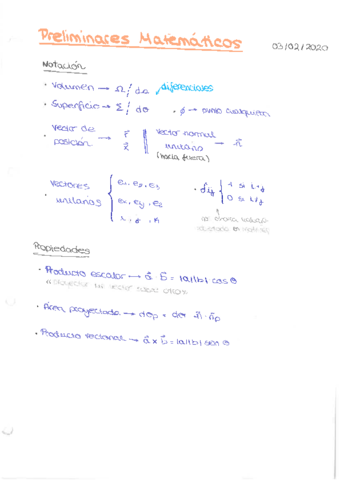 Preliminares Matemáticos
03/02/2020
Notación
· Volumen → Ω ; dω diferenciales
· Superficie → Σ ; dσ · φ →
· Vector de posición → r̄ x̄ || vector normal unitario → n̄ (hacia fuera)
· vectores unitarios { e₁, e₂, e₃
eₓ, e_y, e_z
i, j, k
· δij { 1 si i=j
0 si i≠j
Propiedades
· Producto escalar → ā · b̄ = |a||b| cos θ
· Área proyectada → dσp = dσ n̄ · n̄p
· Producto vectorial → ā x b̄ = |a||b| sen θ